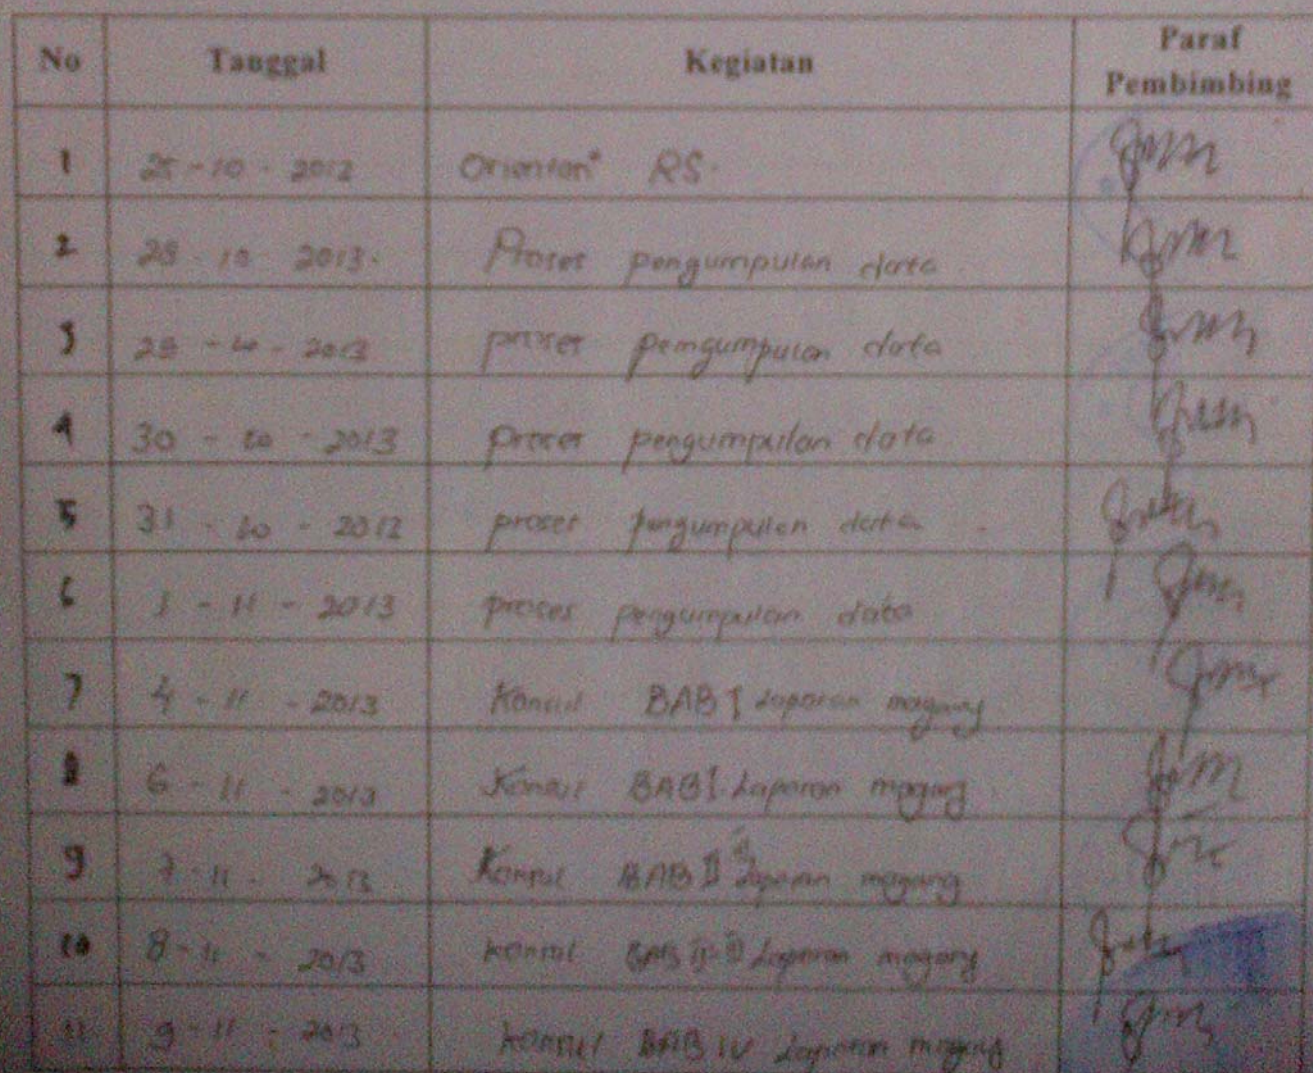 No Tanggal Kegiatan Paraf Pembimbing
1 25-10-2012 RS.
2 28 10 2013. Proses pengumpulan data
3 29-10-2013 proses pemgumpulan data
4 30-10-2013 proses pengumpulan data
5 31-10-2012 proses pengumpulan data
6 1-11-2013 proses pengumpulan data
7 4-11-2013 Konsul BAB I Laporan magang
8 6-11-2013 Konsul BAB I Laporan magang
9 7-11-2013 Konsul BAB II Laporan magang
10 8-11-2013 konsul BAB Laporan magang
11 9-11-2013 konsul BAB IV Laporan magang